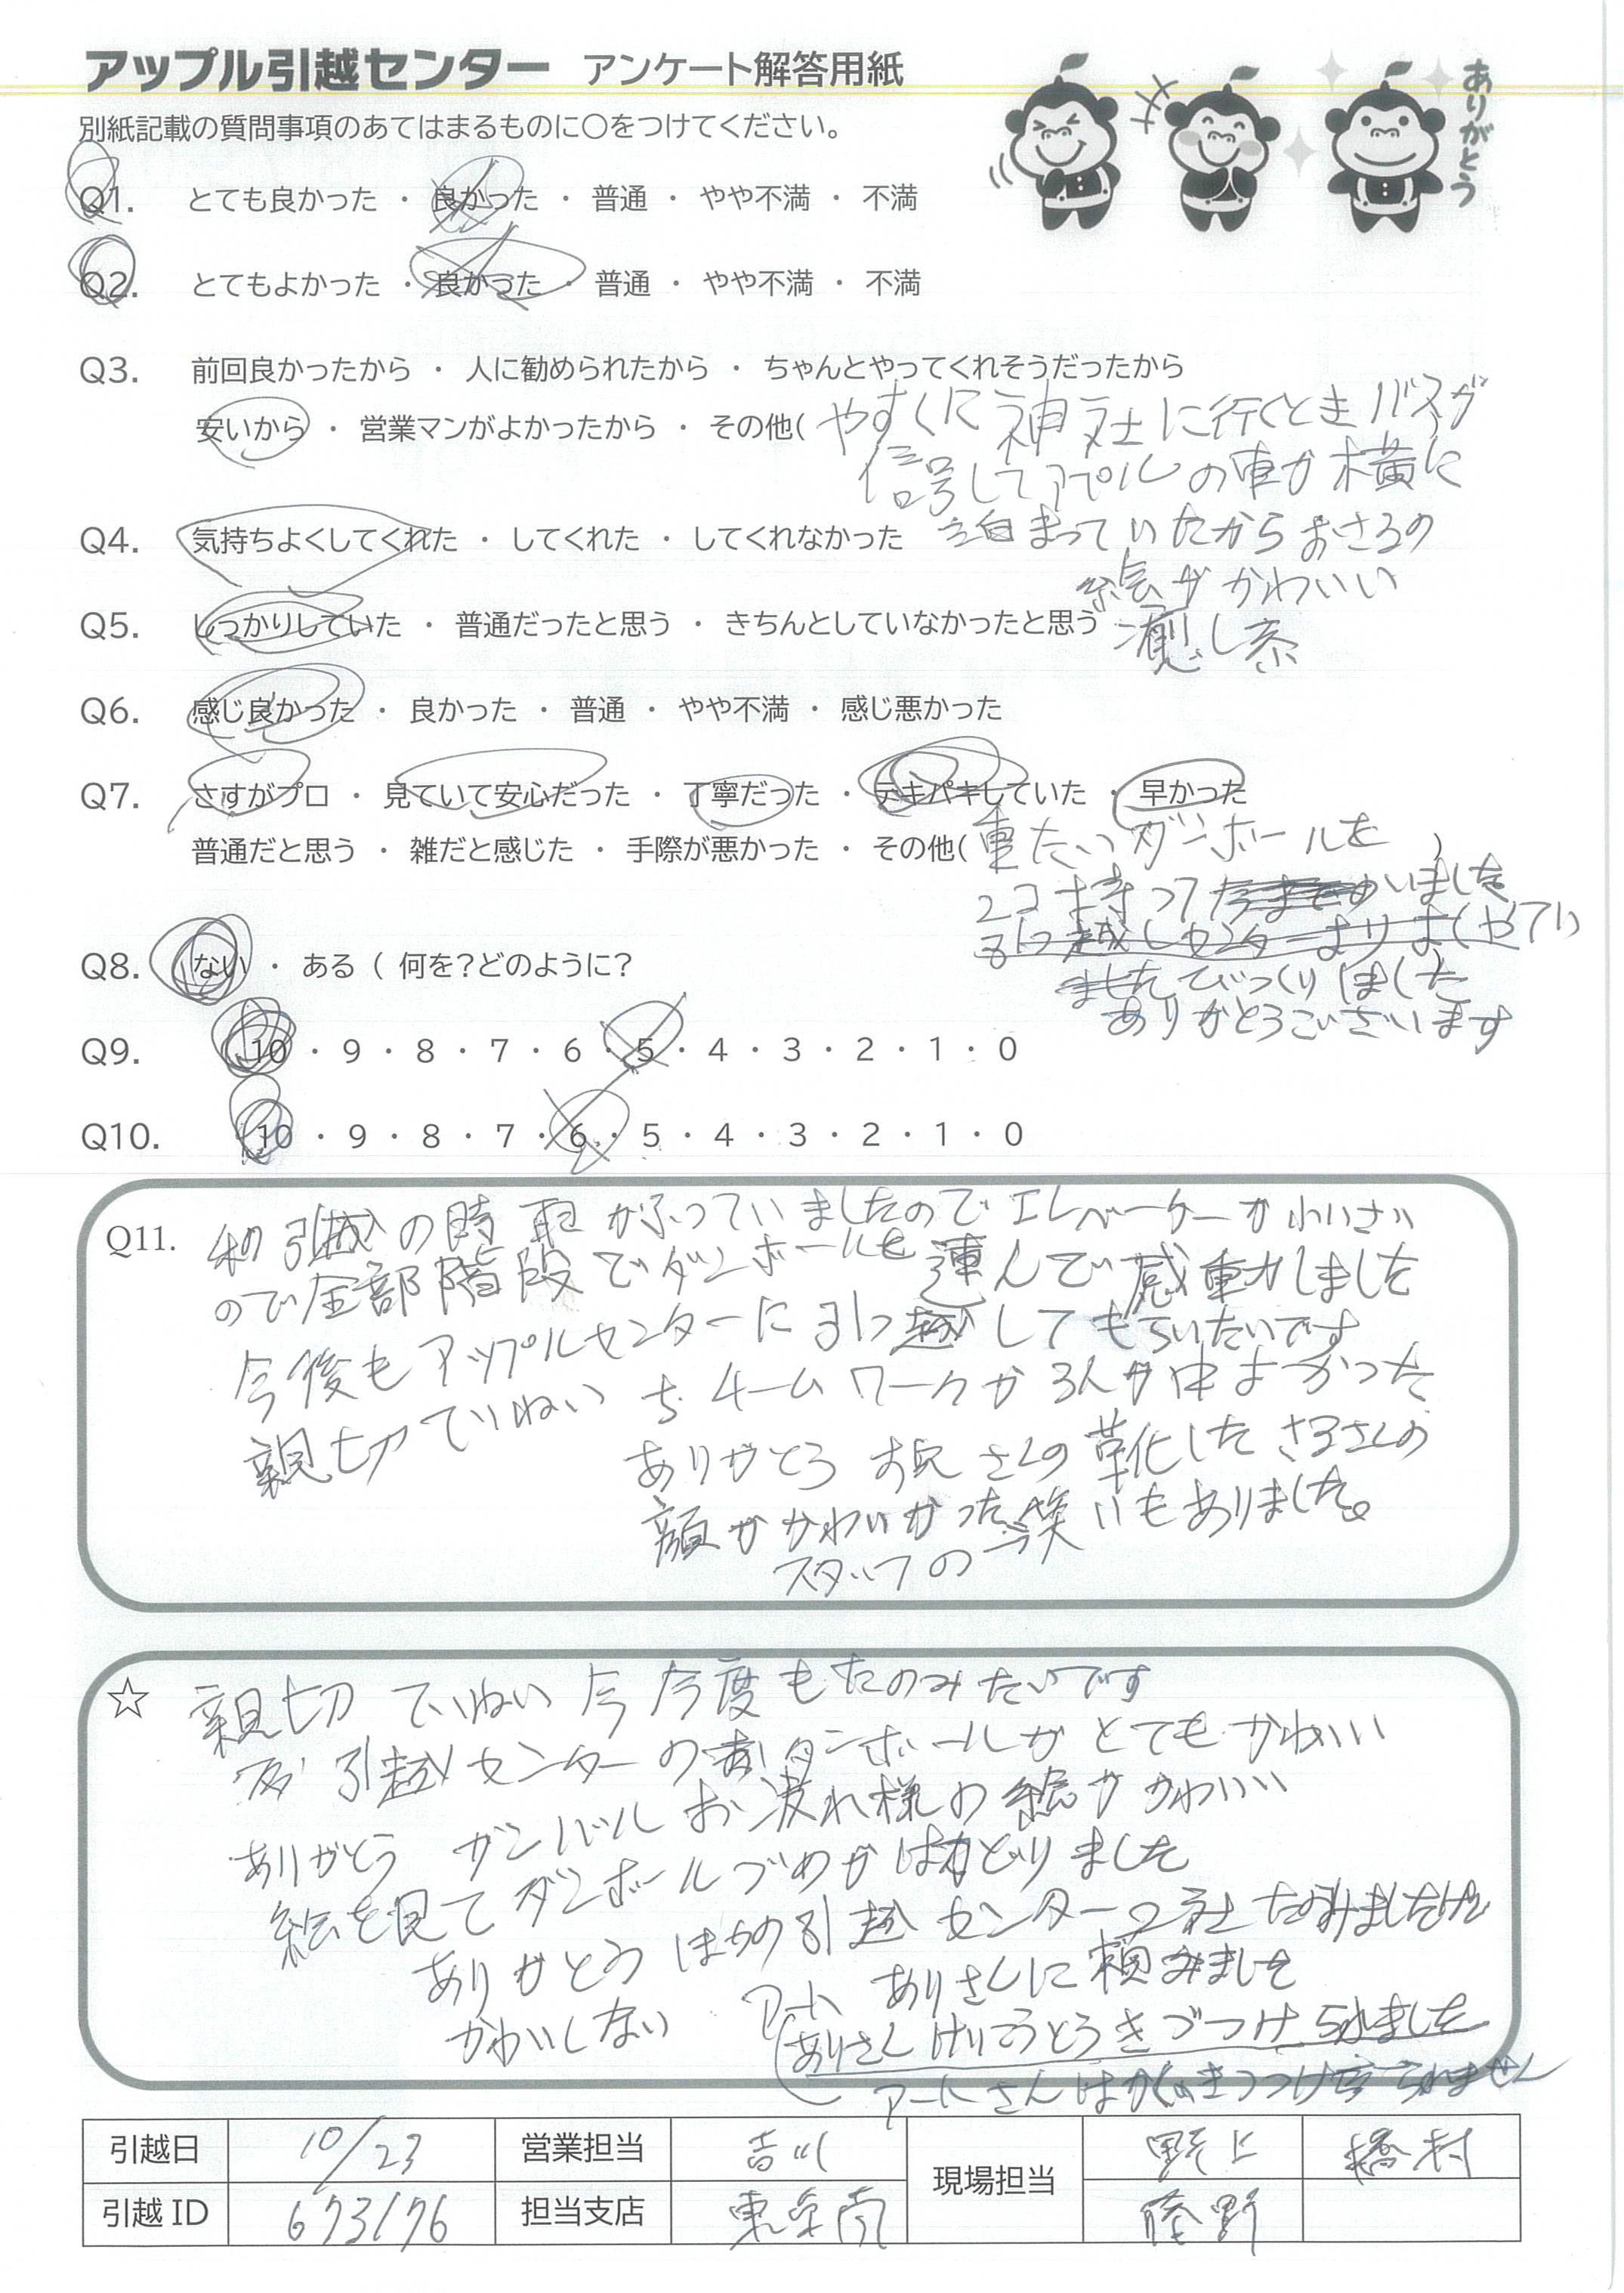 アップル引越センター アンケート解答用紙
ありがとう
別紙記載の質問事項のあてはまるものに○をつけてください。
Q1. とても良かった ・ 良かった ・ 普通 ・ やや不満 ・ 不満
Q2. とてもよかった ・ 良かった ・ 普通 ・ やや不満 ・ 不満
Q3. 前回良かったから ・ 人に勧められたから ・ ちゃんとやってくれそうだったから
安いから ・ 営業マンがよかったから ・ その他( やすくに神社に行くとき バスが
信号してアプルの車が横に
泊まっていたからおさるの
絵がかわいい
癒し系
Q4. 気持ちよくしてくれた ・ してくれた ・ してくれなかった
Q5. しっかりしていた ・ 普通だったと思う ・ きちんとしていなかったと思う
Q6. 感じ良かった ・ 良かった ・ 普通 ・ やや不満 ・ 感じ悪かった
Q7. さすがプロ ・ 見ていて安心だった ・ 丁寧だった ・ テキパキしていた ・ 早かった
普通だと思う ・ 雑だと感じた ・ 手際が悪かった ・ その他( 重たいダンボールを )
2コ持って いました
びっくりしました
ありがとうございます
Q8. ない ・ ある ( 何を?どのように?
Q9. 10 ・ 9 ・ 8 ・ 7 ・ 6 ・ 5 ・ 4 ・ 3 ・ 2 ・ 1 ・ 0
Q10. 10 ・ 9 ・ 8 ・ 7 ・ 6 ・ 5 ・ 4 ・ 3 ・ 2 ・ 1 ・ 0
Q11. 引越の時 雨がふっていましたので エレベーターが小いさい
ので全部階段でダンボールを運んで感動しました
今後もアップルセンターに引っ越してもらいたいです
親切ていねい チームワークが 3人が仲よかった
ありがとう お兄さんの靴した さるさんの
顔がかわいかった 笑いもありました。
スタッフの
☆ 親切 ていねい 今 今度もたのみたいです
引越センターの ダンボールがとてもかわいい
ありがとう ガンバル お疲れ様の絵がかわいい
絵を見てダンボールづめがはかどりました
ありがとう ほかの引越センター2社たのみましたけど
かわいしない アート ありさんに頼みました
ありさん けいこうとう きづつけられました
アートさんは
引越日 10/23 営業担当 吉川 現場担当 野上 橋村
引越ID 673176 担当支店 東京南 藤野